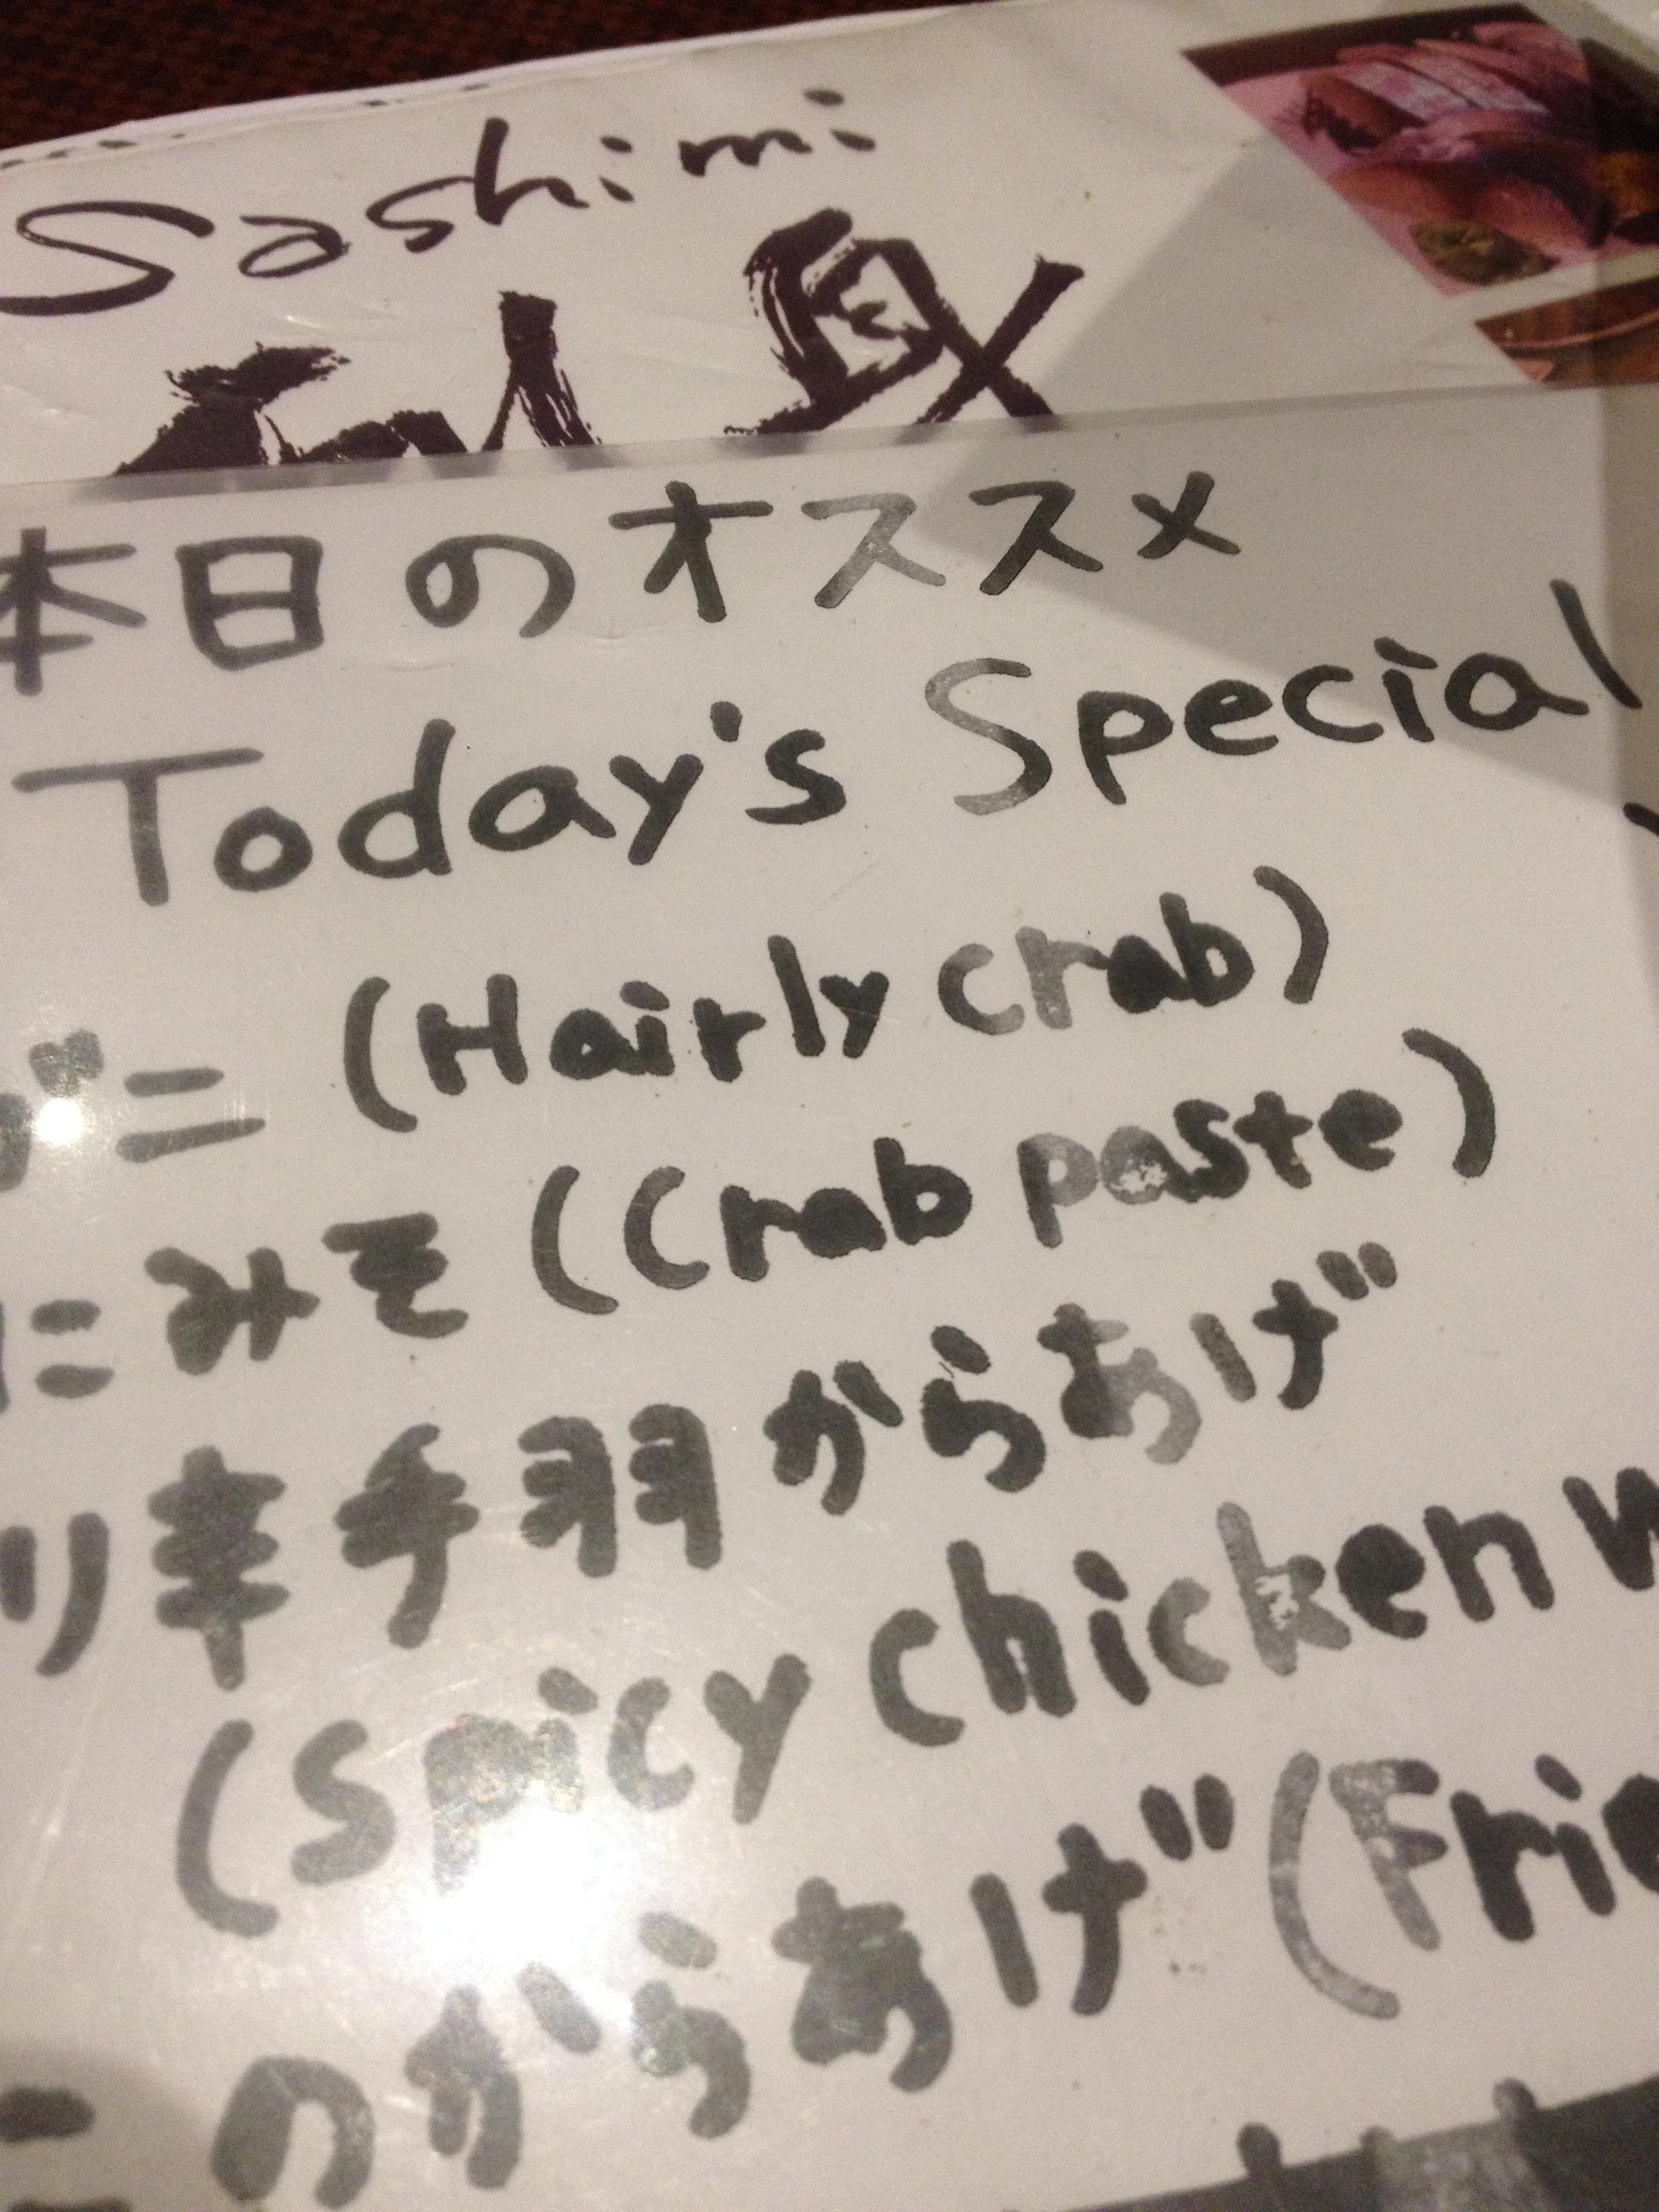 Sashimi
本日のオススメ
Today's Special
ガニ (Hairly crab)
にみそ (Crab paste)
リ辛手羽からあげ
(Spicy chicken w
このからあげ (Frie